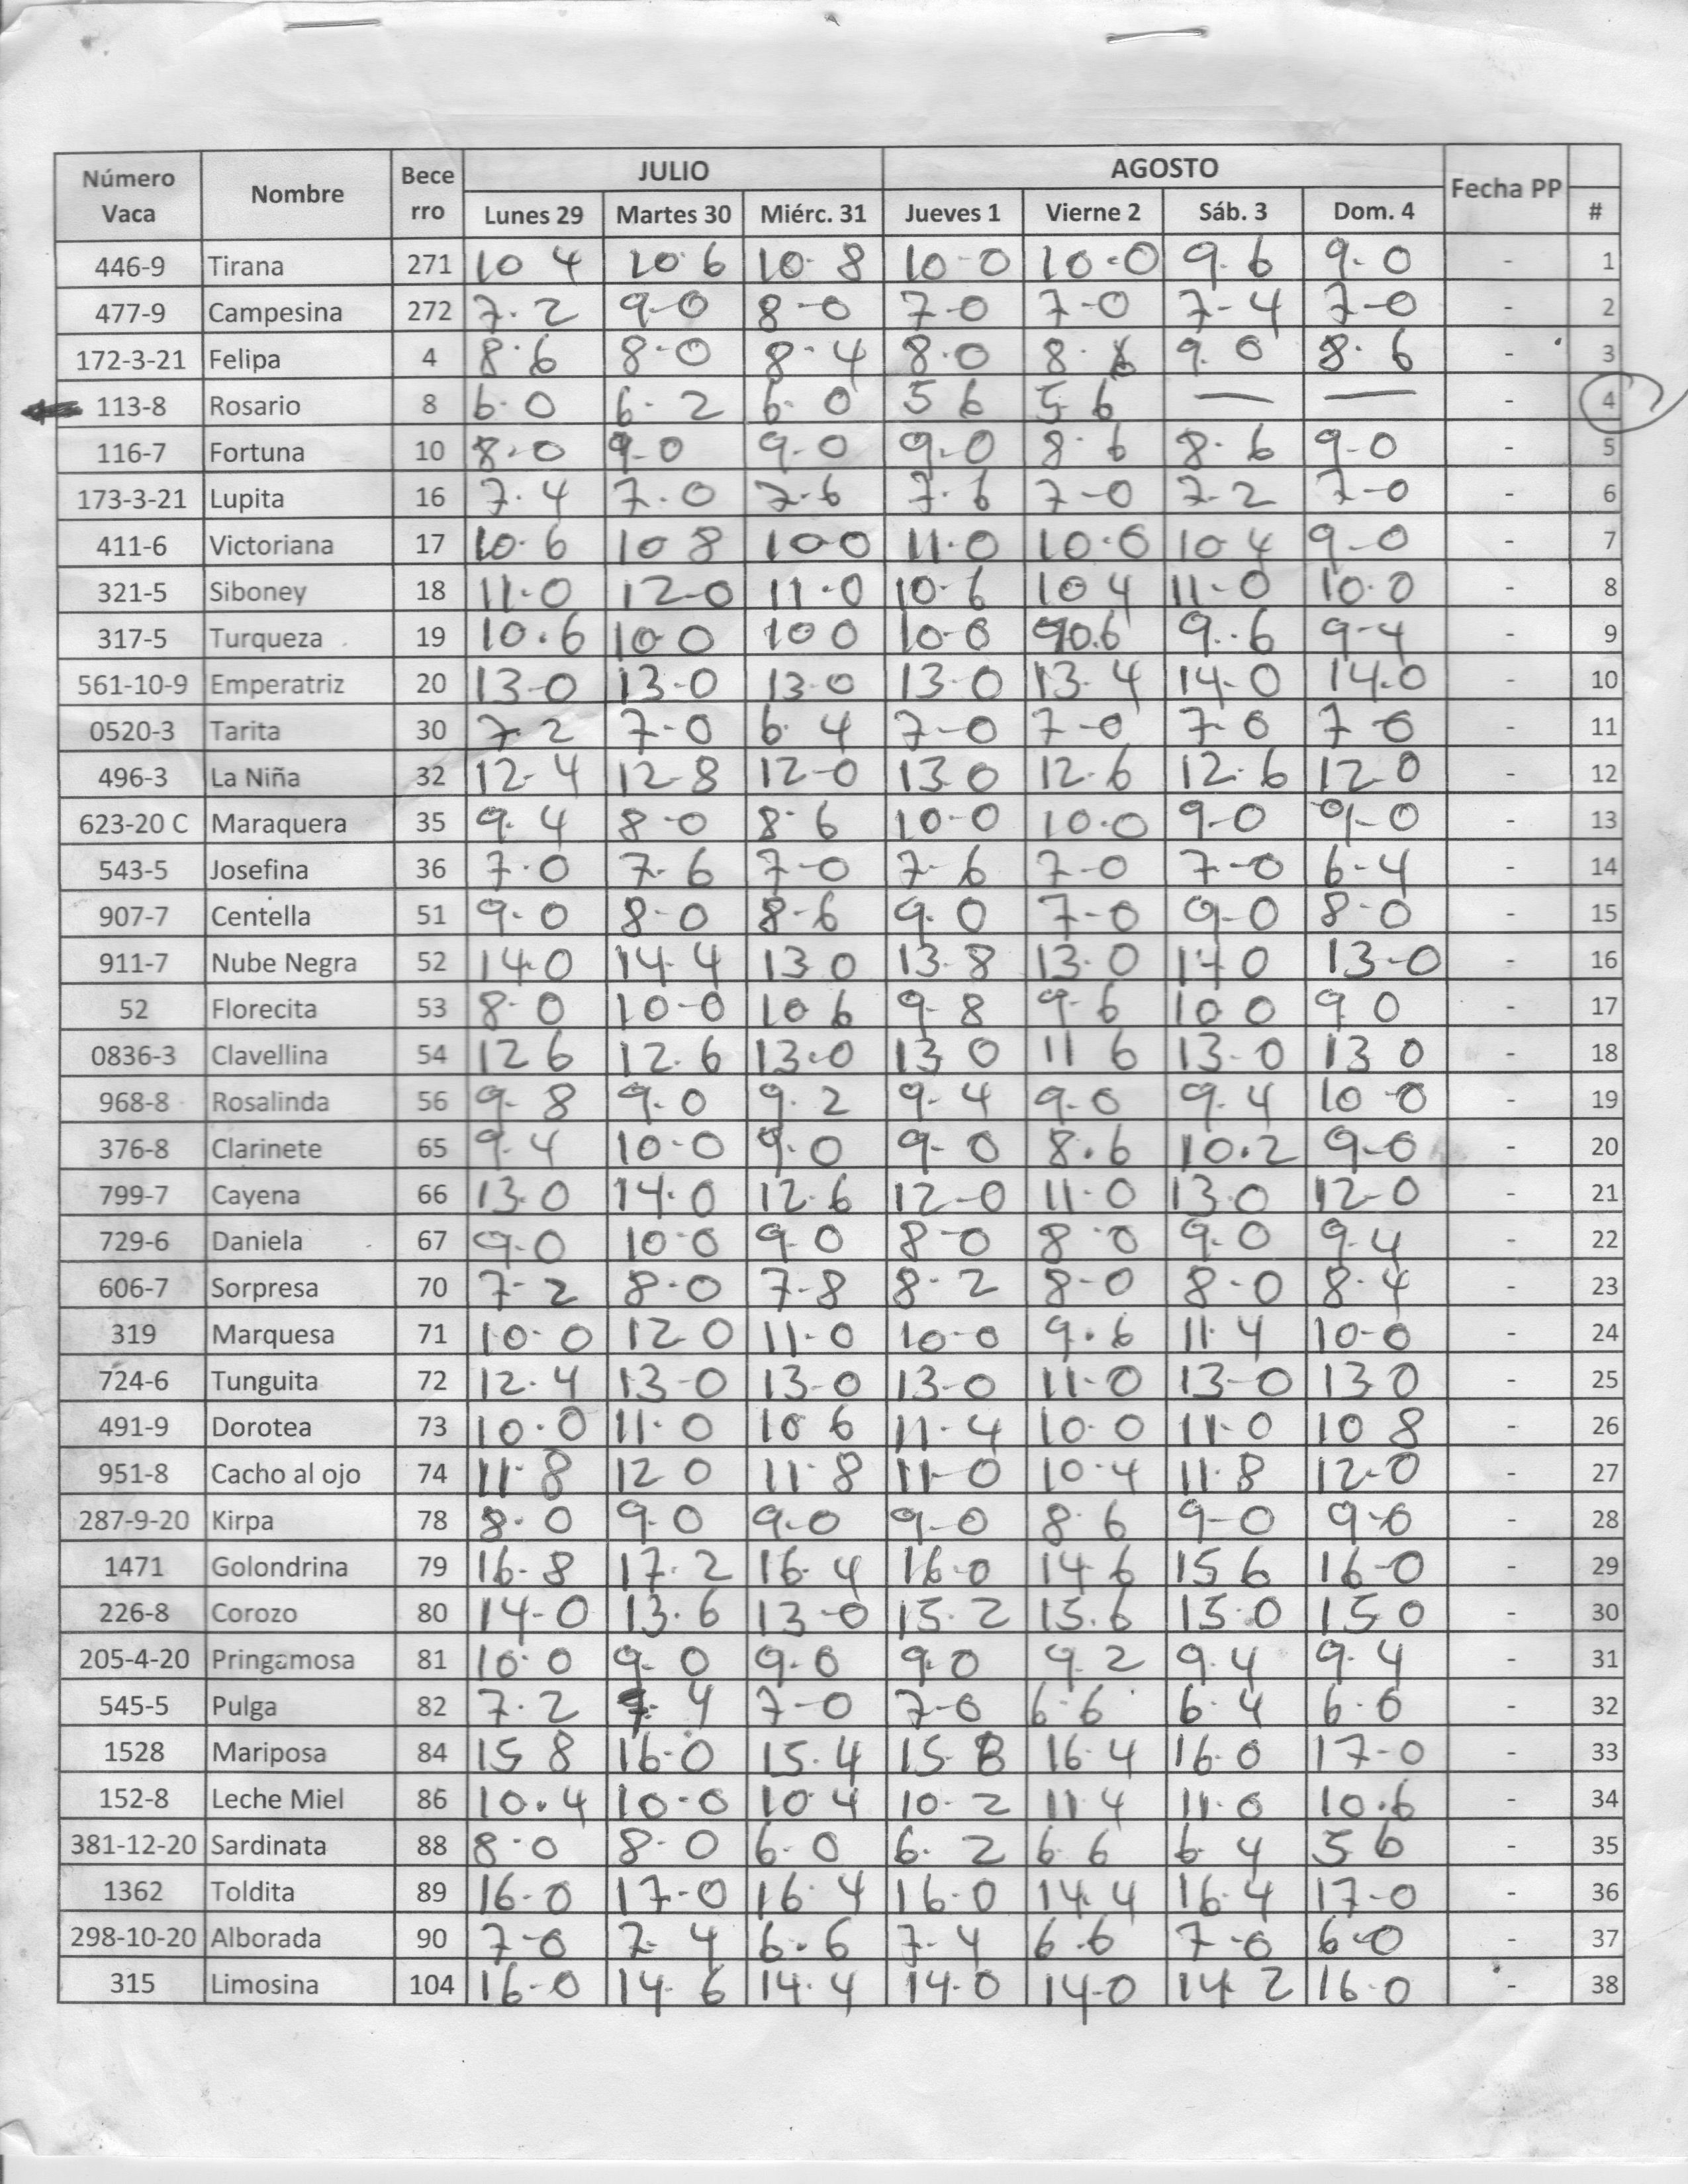 Número Vaca Nombre Bece rro JULIO AGOSTO Fecha PP #
Lunes 29 Martes 30 Miérc. 31 Jueves 1 Vierne 2 Sáb. 3 Dom. 4
446-9 Tirana 271 10 4 10·6 10-8 10-0 10-0 9.6 9-0 - 1
477-9 Campesina 272 7.2 9-0 8-0 7-0 7-0 7-4 7-0 - 2
172-3-21 Felipa 4 8.6 8-0 8-4 8.0 8. 9.0 8.6 - 3
113-8 Rosario 8 6-0 6-2 6-0 5 6 5-6 — — - 4
116-7 Fortuna 10 8.0 9-0 9-0 9-0 8.6 8.6 9-0 - 5
173-3-21 Lupita 16 7.4 7.0 7-6 7.6 7-0 7-2 7-0 - 6
411-6 Victoriana 17 10.6 10 8 10-0 11.0 10.0 10 4 9-0 - 7
321-5 Siboney 18 11-0 12-0 11.0 10-6 10 4 11-0 10.0 - 8
317-5 Turqueza 19 10.6 10-0 10 0 10-0 90.6 9.6 9-4 - 9
561-10-9 Emperatriz 20 13-0 13-0 13-0 13-0 13-4 14-0 14.0 - 10
0520-3 Tarita 30 7.2 7-0 6.4 7-0 7-0 7-0 7-0 - 11
496-3 La Niña 32 12-4 12-8 12-0 13 0 12.6 12.6 12-0 - 12
623-20 C Maraquera 35 9.4 8-0 8.6 10-0 10.0 9-0 9-0 - 13
543-5 Josefina 36 7.0 7.6 7-0 7-6 7-0 7-0 6-4 - 14
907-7 Centella 51 9-0 8-0 8-6 9.0 7-0 9-0 8-0 - 15
911-7 Nube Negra 52 14.0 14.4 13 0 13-8 13.0 14 0 13-0 - 16
52 Florecita 53 8-0 10-0 10 6 9-8 9-6 10 0 9 0 - 17
0836-3 Clavellina 54 12 6 12.6 13.0 13 0 11 6 13-0 13 0 - 18
968-8 Rosalinda 56 9-8 9.0 9.2 9-4 9.0 9.4 10-0 - 19
376-8 Clarinete 65 9-4 10-0 9.0 9-0 8.6 10.2 9-0 - 20
799-7 Cayena 66 13.0 14.0 12.6 12-0 11.0 13.0 12-0 - 21
729-6 Daniela 67 9-0 10-0 9-0 8-0 8-0 9.0 9.4 - 22
606-7 Sorpresa 70 7-2 8-0 7-8 8-2 8-0 8-0 8.4 - 23
319 Marquesa 71 10-0 12 0 11-0 10-0 9.6 11.4 10-0 - 24
724-6 Tunguita 72 12.4 13-0 13-0 13-0 11-0 13-0 13 0 - 25
491-9 Dorotea 73 10.0 11-0 10 6 11-4 10-0 11-0 10 8 - 26
951-8 Cacho al ojo 74 11-8 12 0 11-8 11-0 10-4 11-8 12-0 - 27
287-9-20 Kirpa 78 8-0 9-0 9-0 9-0 8.6 9-0 9-0 - 28
1471 Golondrina 79 16-8 17.2 16-4 16-0 14 6 15 6 16-0 - 29
226-8 Corozo 80 14-0 13.6 13-0 15.2 15.6 15.0 15 0 - 30
205-4-20 Pringamosa 81 10-0 9-0 9-0 9-0 9.2 9.4 9.4 - 31
545-5 Pulga 82 7.2 7.4 7-0 7-0 6-6 6.4 6.0 - 32
1528 Mariposa 84 15 8 16-0 15.4 15-8 16-4 16-0 17-0 - 33
152-8 Leche Miel 86 10.4 10-0 10 4 10-2 11 4 11.0 10.6 - 34
381-12-20 Sardinata 88 8-0 8-0 6-0 6-2 6-6 6-4 5 6 - 35
1362 Toldita 89 16-0 17-0 16-4 16-0 14.4 16-4 17-0 - 36
298-10-20 Alborada 90 7-0 7-4 6.6 7-4 6.6 7-0 6-0 - 37
315 Limosina 104 16-0 14.6 14.4 14-0 14-0 14 2 16-0 - 38